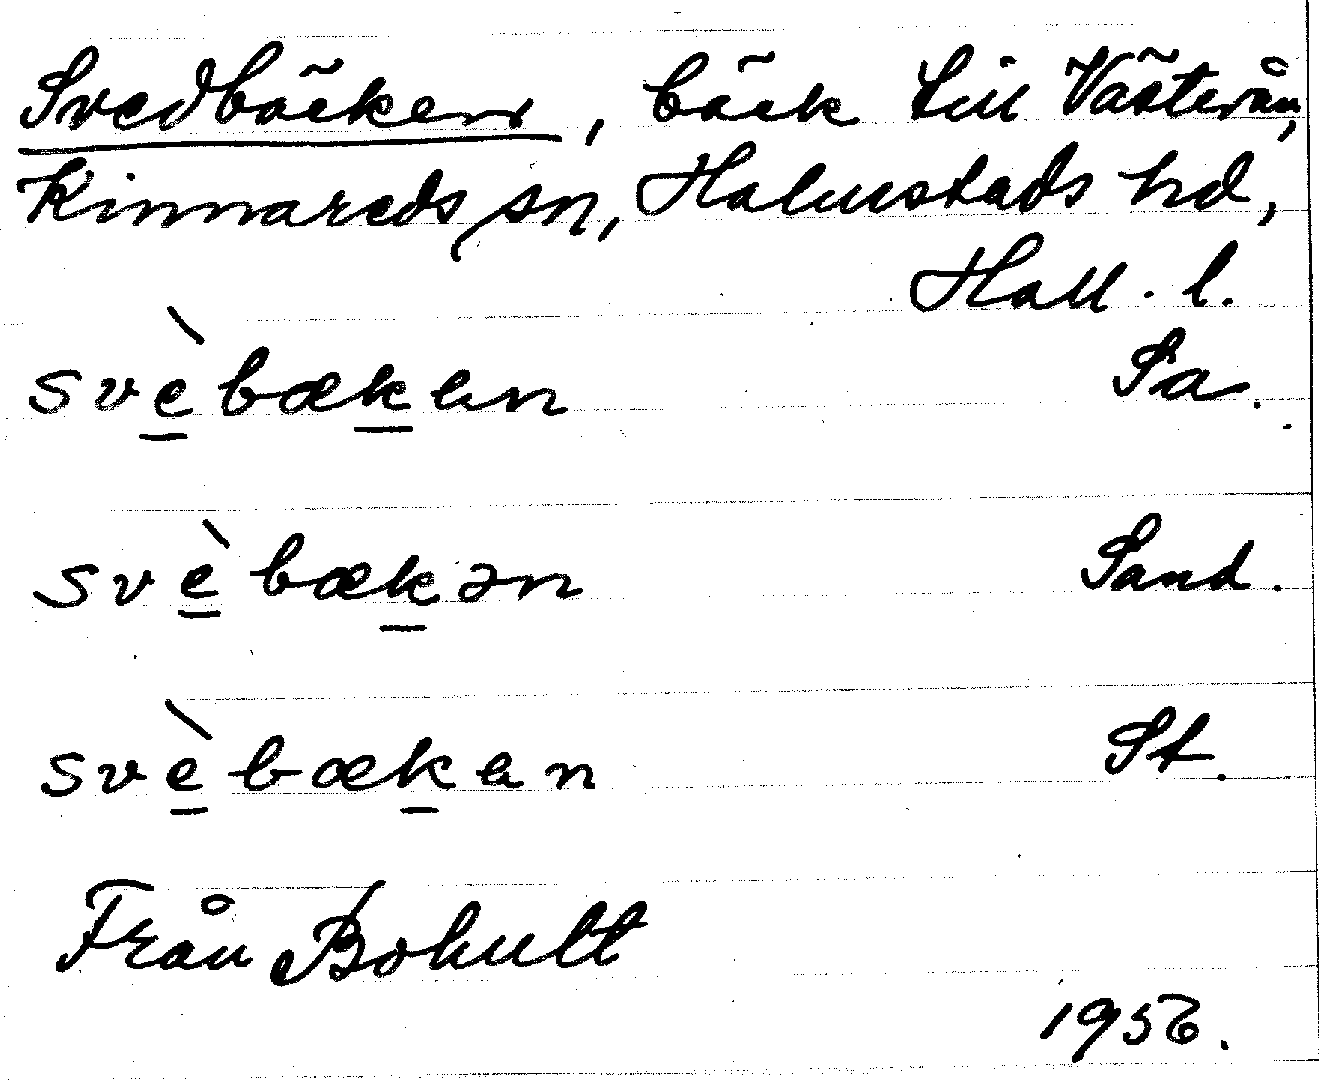 Svedbäcken, bäck till Västerån,
Kinnareds sn, Halmstads hd,
Hall. l.
svèbæken Sa.
svèbækən Sand.
svèbæken St.
Från Bohult
1956.